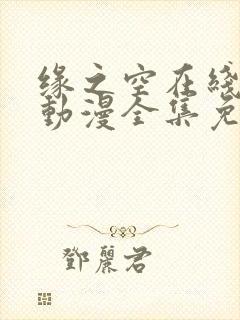 缘之空在綫
動漫全集免
鄧麗君